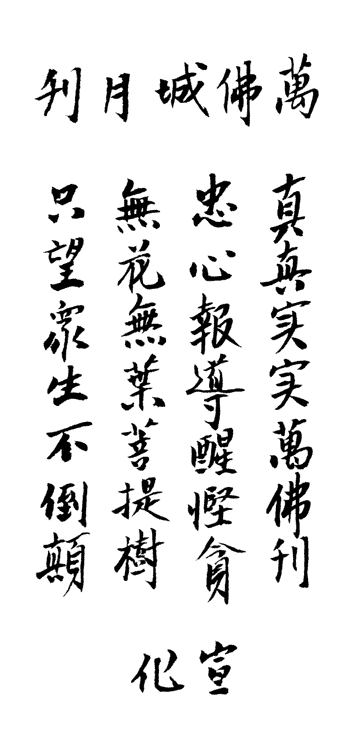 萬佛城月刊
真真实实萬佛刊
忠心報導醒慳貪
無花無葉菩提樹
只望眾生不倒顛
宣化